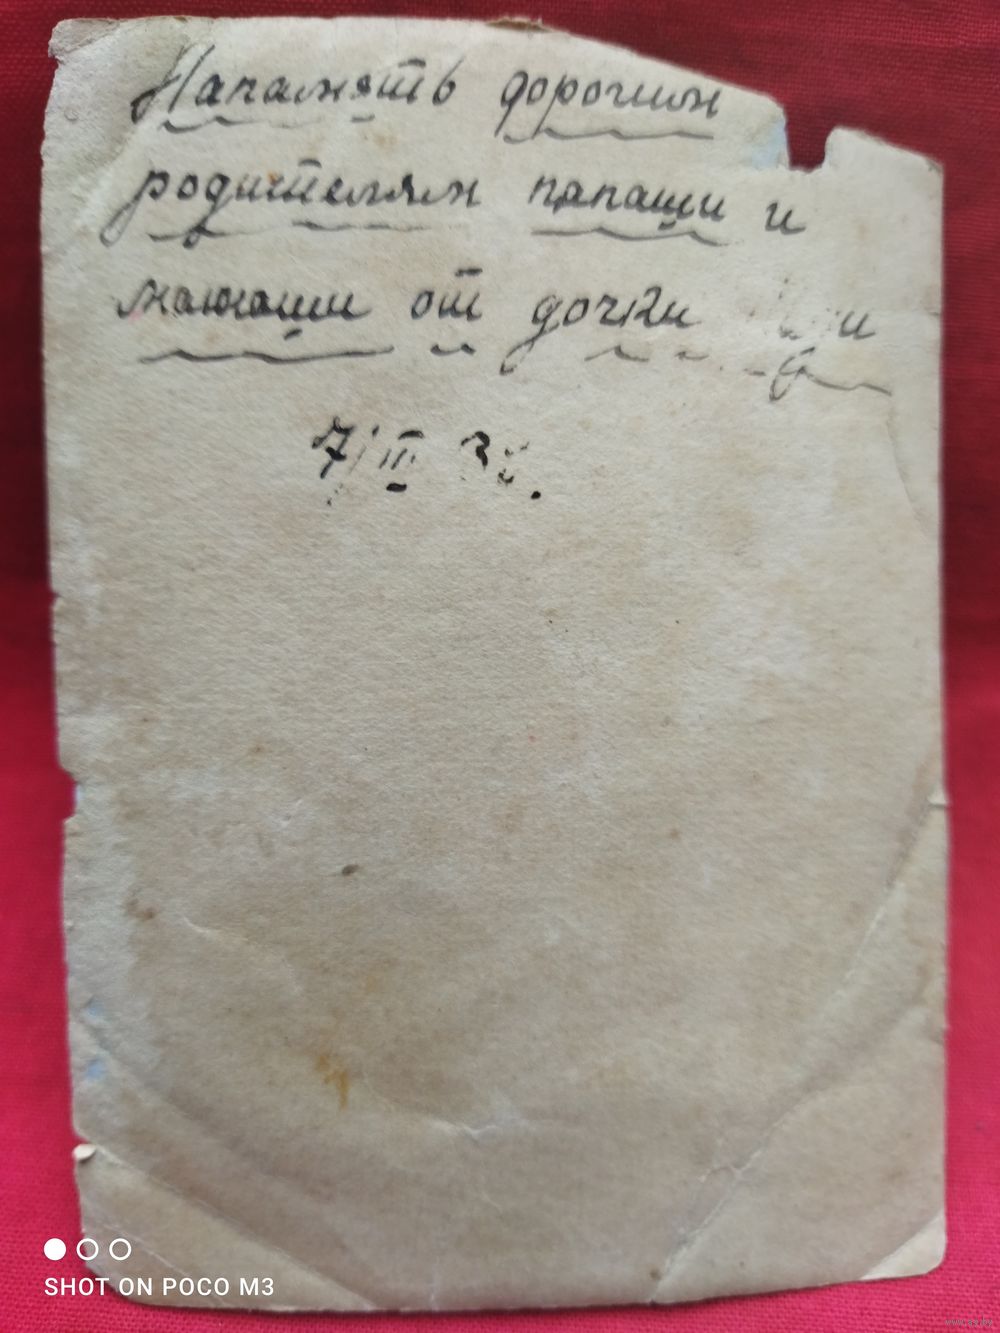 Напамять дорогим
родителям папаши и
мамаши от дочки
7/II
SHOT ON POCO M3